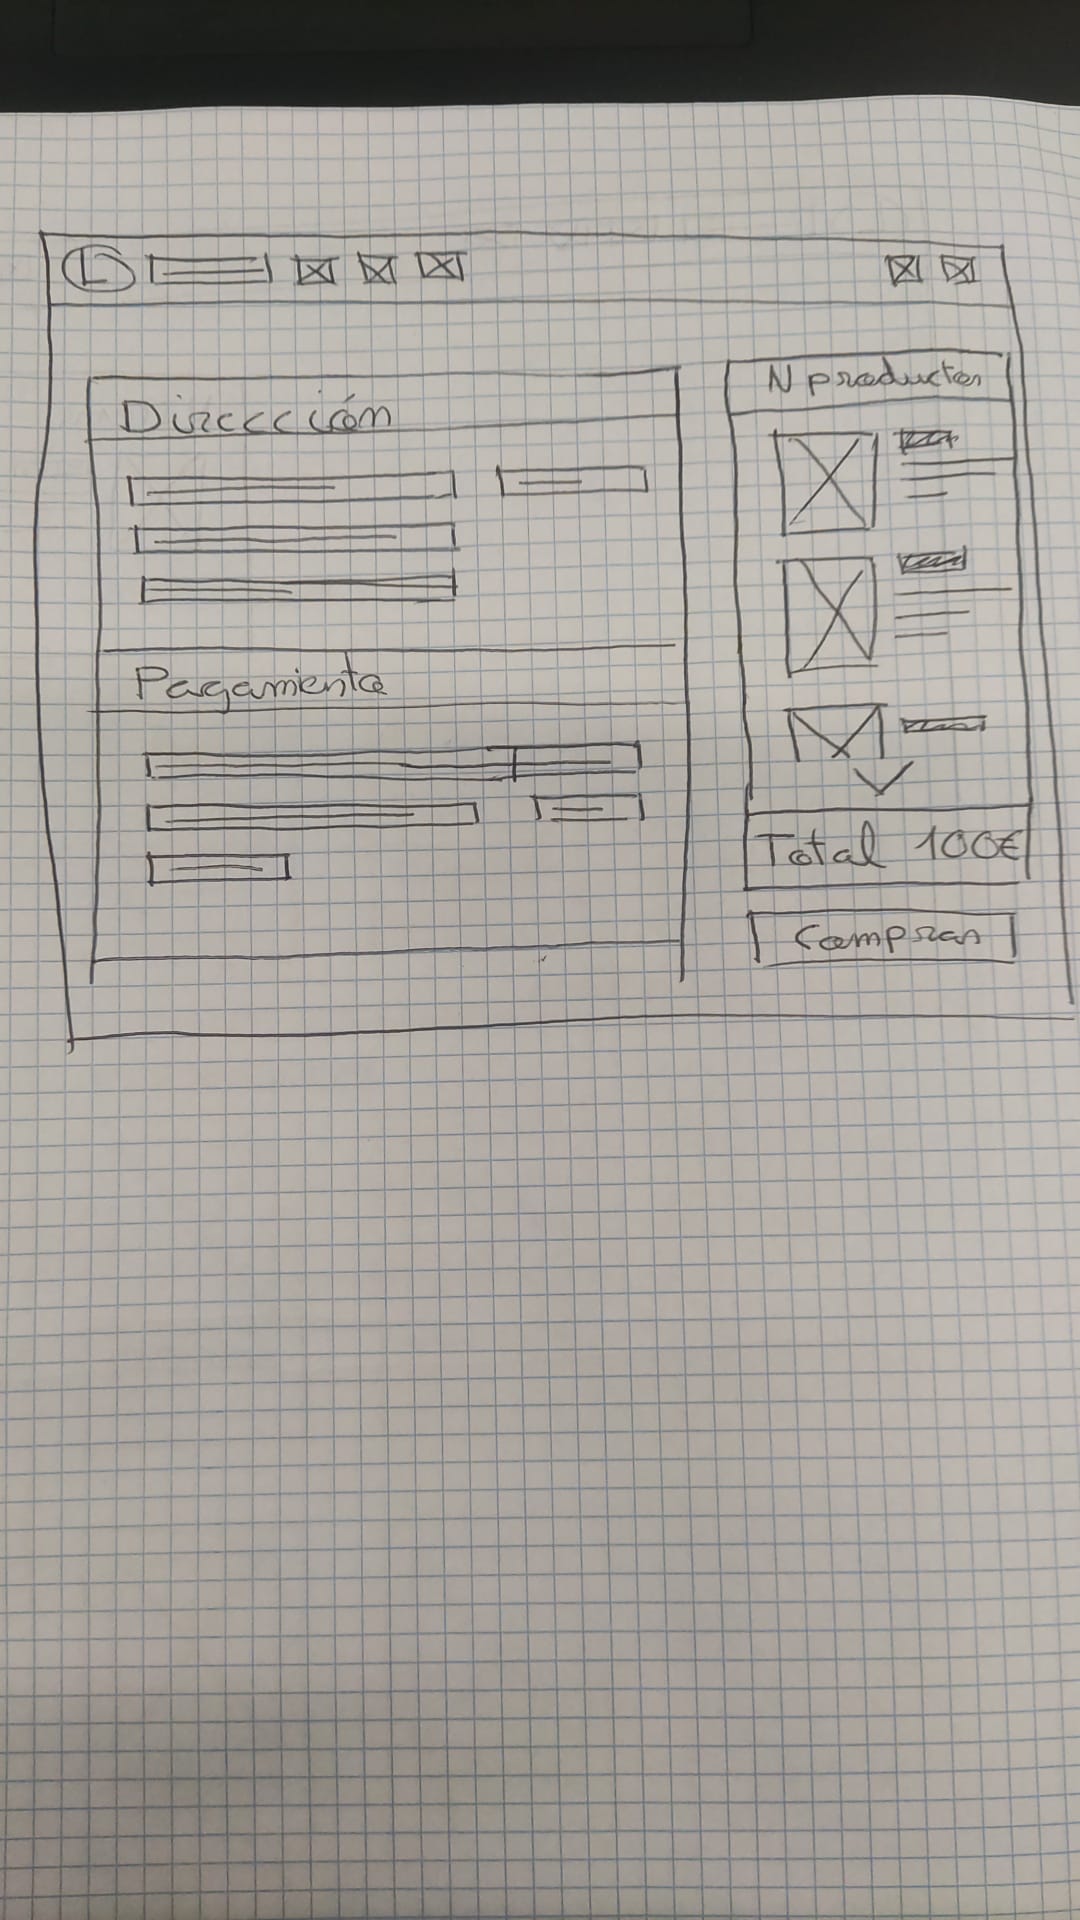 L
Dirección
Pagamiento
N productos
Total 100€
Comprar